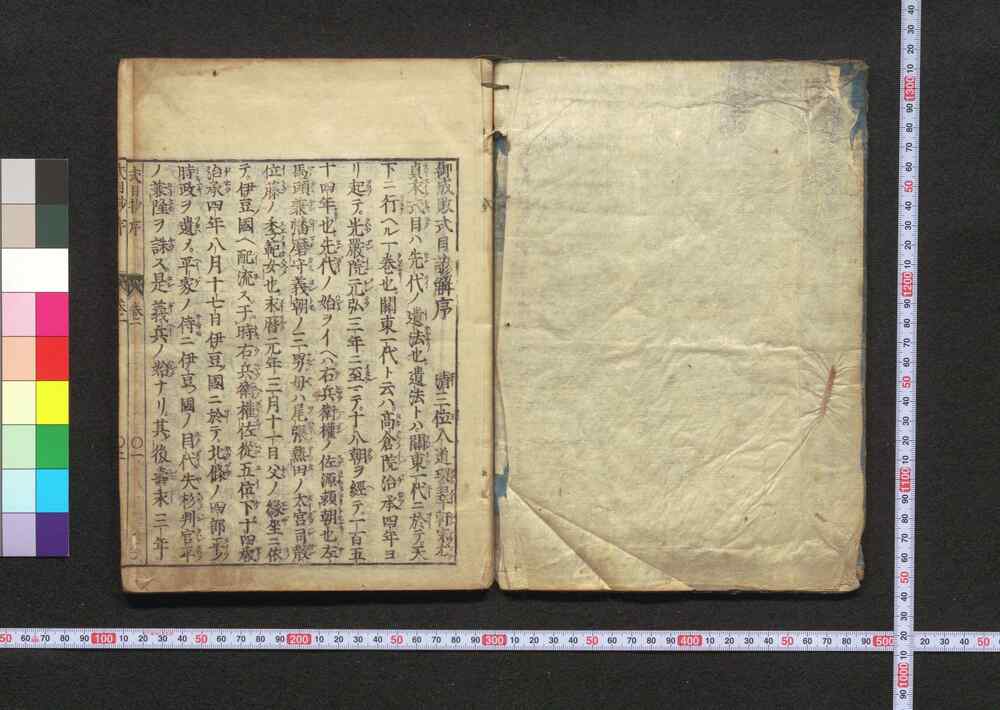 御成敗式目諺解序 清三位入道環翠軒宗尤
貞永式目ハ先代ノ遺法也遺法トハ關東一代ニ於テ天
下ニ行ヘル一巻也關東一代ト云ハ高倉院治承四年ヨ
リ起テ光嚴院元弘三年ニ至マテ十八朝ヲ經テ一百五
十四年也先代ノ始ヲイヘハ右兵衛權ノ佐源頼朝也左
馬頭兼播磨守義朝ノ三男母ハ尾張熱田ノ大宮司散
位藤ノ季範女也永暦元年三月十一日父ノ縁坐ニ依
テ伊豆國ヘ配流ス于時右兵衛權佐從五位下十四歳
治承四年八月十七日伊豆國ニ於テ北條ノ四郎平ノ
時政ヲ遣ノ平家ノ侍ニ伊豆國ノ目代矢杉判官平
ノ兼隆ヲ誅ス是義兵ノ始ナリ其後壽永三年
式目抄序 巻一 〇一